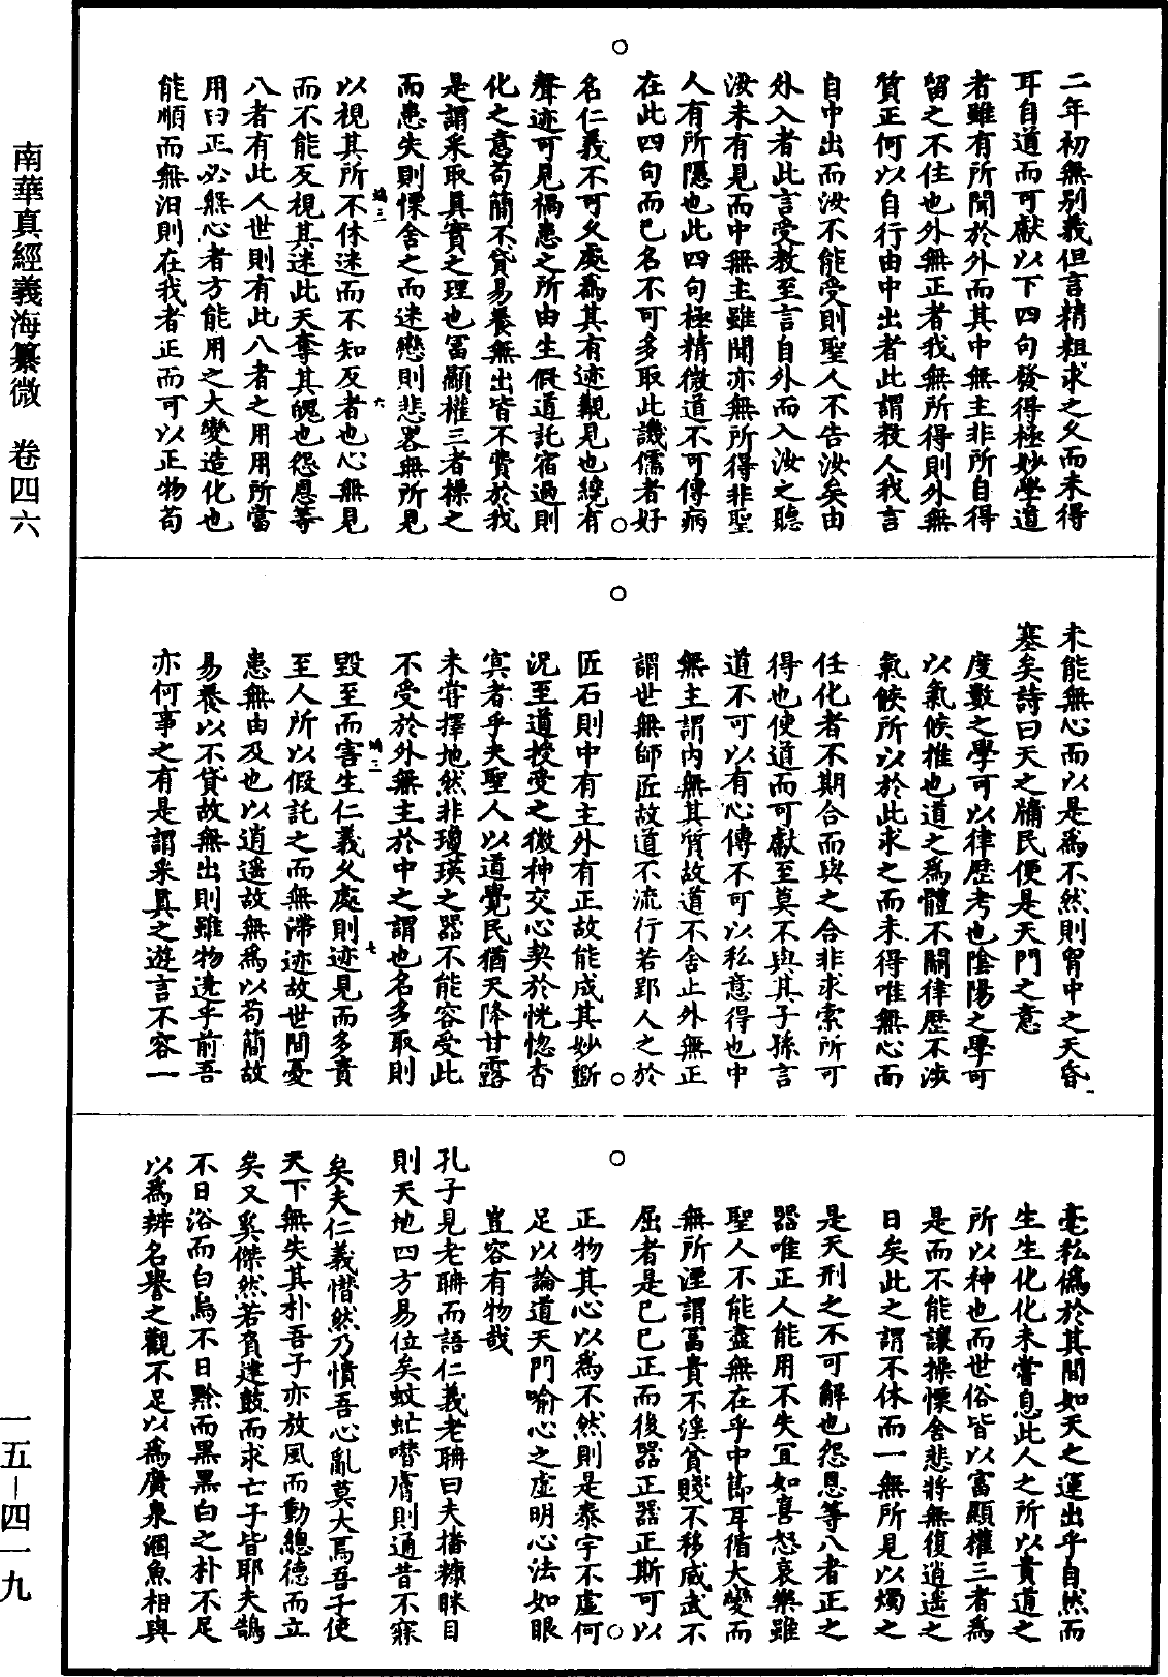 南華真經義海纂微　卷四六
一五—四一九
二年初無別義但言精粗求之久而未得
耳自道而可獻以下四句發得極妙學道
者雖有所聞於外而其中無主非所自得
留之不住也外無正者我無所得則外無
質正何以自行由中出者此謂教人我言
自中出而汝不能受則聖人不告汝矣由
外入者此言受教至言自外而入汝之聽
汝未有見而中無主雖聞亦無所得非聖
人有所隱也此四句極精微道不可傳病
在此四句而已名不可多取此譏儒者好
名仁義不可久處為其有迹觀見也纔有
聲迹可見禍患之所由生假道託宿過則
化之意苟簡不貸易養無出皆不費於我
是謂采取真實之理也富顯權三者操之
而患失則慄舍之而迷戀則悲畧無所見
以視其所不休迷而不知反者也心無見
而不能反視其迷此天奪其魄也怨恩等
八者有此人世則有此八者之用用所當
用曰正必無心者方能用之大變造化也
能順而無汨則在我者正而可以正物苟
未能無心而以是為不然則胷中之天昏
塞矣詩曰天之牖民便是天門之意
度數之學可以律歷考也陰陽之學可
以氣候推也道之為體不關律歷不涉
氣候所以於此求之而未得唯無心而
任化者不期合而與之合非求索所可
得也使道而可獻至莫不與其子孫言
道不可以有心傳不可以私意得也中
無主謂内無其質故道不舍止外無正
謂世無師匠故道不流行若郢人之於
匠石則中有主外有正故能成其妙斲
況至道授受之微神交心契於恍惚杳
冥者乎夫聖人以道覺民猶天降甘露
未甞擇地然非瓊瑛之器不能容受此
不受於外無主於中之謂也名多取則
毀至而害生仁義久處則迹見而多責
至人所以假託之而無滯迹故世間憂
患無由及也以逍遥故無為以苟簡故
易養以不貸故無出則雖物迭乎前吾
亦何事之有是謂采真之遊言不容一
毫私偽於其間如天之運出乎自然而
生生化化未嘗息此人之所以貴道之
所以神也而世俗皆以富顯權三者為
是而不能讓操慄舍悲將無復逍遥之
日矣此之謂不休而一無所見以燭之
是天刑之不可解也怨恩等八者正之
器唯正人能用不失宜如喜怒哀樂雖
聖人不能盡無在乎中節耳循大變而
無所湮謂冨貴不淫貧賤不移威武不
屈者是已已正而後器正器正斯可以
正物其心以為不然則是泰宇不虛何
足以論道天門喻心之虛明心法如眼
豈容有物哉
孔子見老聃而語仁義老聃曰夫播糠眯目
則天地四方易位矣蚊虻噆膚則通昔不寐
矣夫仁義憯然乃憤吾心亂莫大焉吾子使
天下無失其朴吾子亦放風而動總德而立
矣又奚傑然若負建鼓而求亡子皆耶夫鵠
不日浴而白烏不日黔而黑黑白之朴不足
以為辨名譽之觀不足以為廣泉涸魚相與